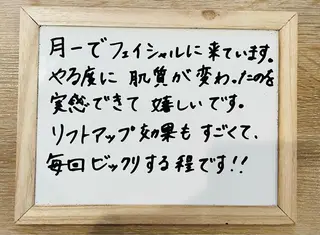 月一でフェイシャルに来ています。
やる度に肌質が変わったのを
実感できて嬉しいです。
リフトアップ効果もすごくて、
毎回ビックリする程です!!